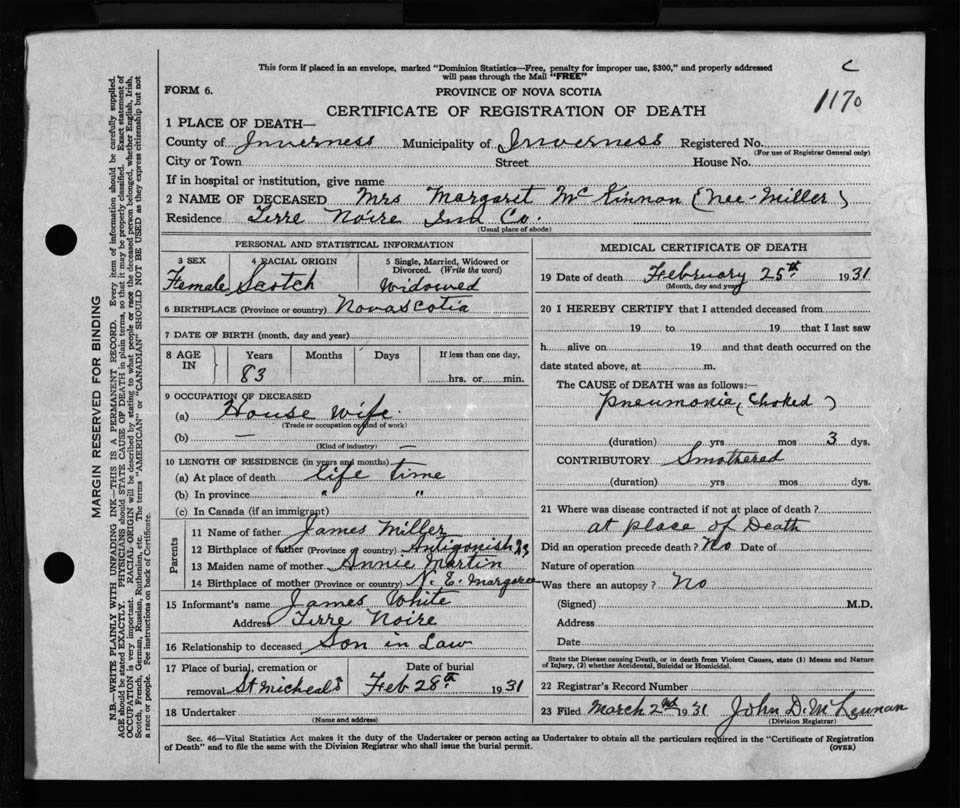 This form if placed in an envelope, marked "Dominion Statistics—Free, penalty for improper use, $300," and properly addressed
will pass through the Mail "FREE"
C
1170
FORM 6.
PROVINCE OF NOVA SCOTIA
CERTIFICATE OF REGISTRATION OF DEATH
1 PLACE OF DEATH—
County of Inverness Municipality of Inverness Registered No.
(For use of Registrar General only)
City or Town Street House No.
If in hospital or institution, give name
2 NAME OF DECEASED Mrs Margaret Mc Kinnon (Nee-Miller)
Residence Terre Noire Inn Co.
(Usual place of abode)
PERSONAL AND STATISTICAL INFORMATION
3 SEX 4 RACIAL ORIGIN 5 Single, Married, Widowed or
Divorced. (Write the word)
Female Scotch Widowed
6 BIRTHPLACE (Province or country) Nova Scotia
7 DATE OF BIRTH (month, day and year)
8 AGE IN Years Months Days If less than one day,
83 hrs. or min.
9 OCCUPATION OF DECEASED
(a) House Wife.
(Trade or occupation or kind of work)
(b) —
(Kind of industry) —
10 LENGTH OF RESIDENCE (in years and months)
(a) At place of death life time
(b) In province " "
(c) In Canada (if an immigrant)
Parents
11 Name of father James Miller
12 Birthplace of father (Province or country) Antigonish
13 Maiden name of mother Annie Martin
14 Birthplace of mother (Province or country) N. E. Margaree
15 Informant's name James White
Address Terre Noire
16 Relationship to deceased Son in Law
17 Place of burial, cremation or Date of burial
removal St Micheals Feb 28th 1931
18 Undertaker
(Name and address)
MEDICAL CERTIFICATE OF DEATH
19 Date of death February 25th 1931
(Month, day and year)
20 I HEREBY CERTIFY that I attended deceased from
19 to 19 that I last saw
h alive on 19 and that death occurred on the
date stated above, at m.
The CAUSE of DEATH was as follows:—
Pneumonia (Choked)
(duration) yrs mos 3 dys.
CONTRIBUTORY Smothered
(duration) yrs mos dys.
21 Where was disease contracted if not at place of death ?
at place of Death
Did an operation precede death ? No Date of
Nature of operation
Was there an autopsy ? No
(Signed) M.D.
Address
Date
State the Disease causing Death, or in death from Violent Causes, state (1) Means and Nature
of Injury, (2) whether Accidental, Suicidal or Homicidal.
22 Registrar's Record Number
23 Filed March 2nd 1931 John D. McLennan
(Division Registrar)
Sec. 46—Vital Statistics Act makes it the duty of the Undertaker or person acting as Undertaker to obtain all the particulars required in the "Certificate of Registration
of Death" and to file the same with the Division Registrar who shall issue the burial permit.
(OVER)
MARGIN RESERVED FOR BINDING
N.B.—WRITE PLAINLY WITH UNFADING INK—THIS IS A PERMANENT RECORD. Every item of information should be carefully supplied.
AGE should be stated EXACTLY. PHYSICIANS should STATE CAUSE OF DEATH in plain terms, so that it may be properly classified. Exact statement of
OCCUPATION is very important. RACIAL ORIGIN will be described by stating to what people or race the deceased person belonged, whether English, Irish,
Scotch, French, German, Russian, Ruthenian, etc. The terms "AMERICAN" or "CANADIAN" SHOULD NOT BE USED as they express citizenship but not
a race or people. Fee instructions on back of Certificate.